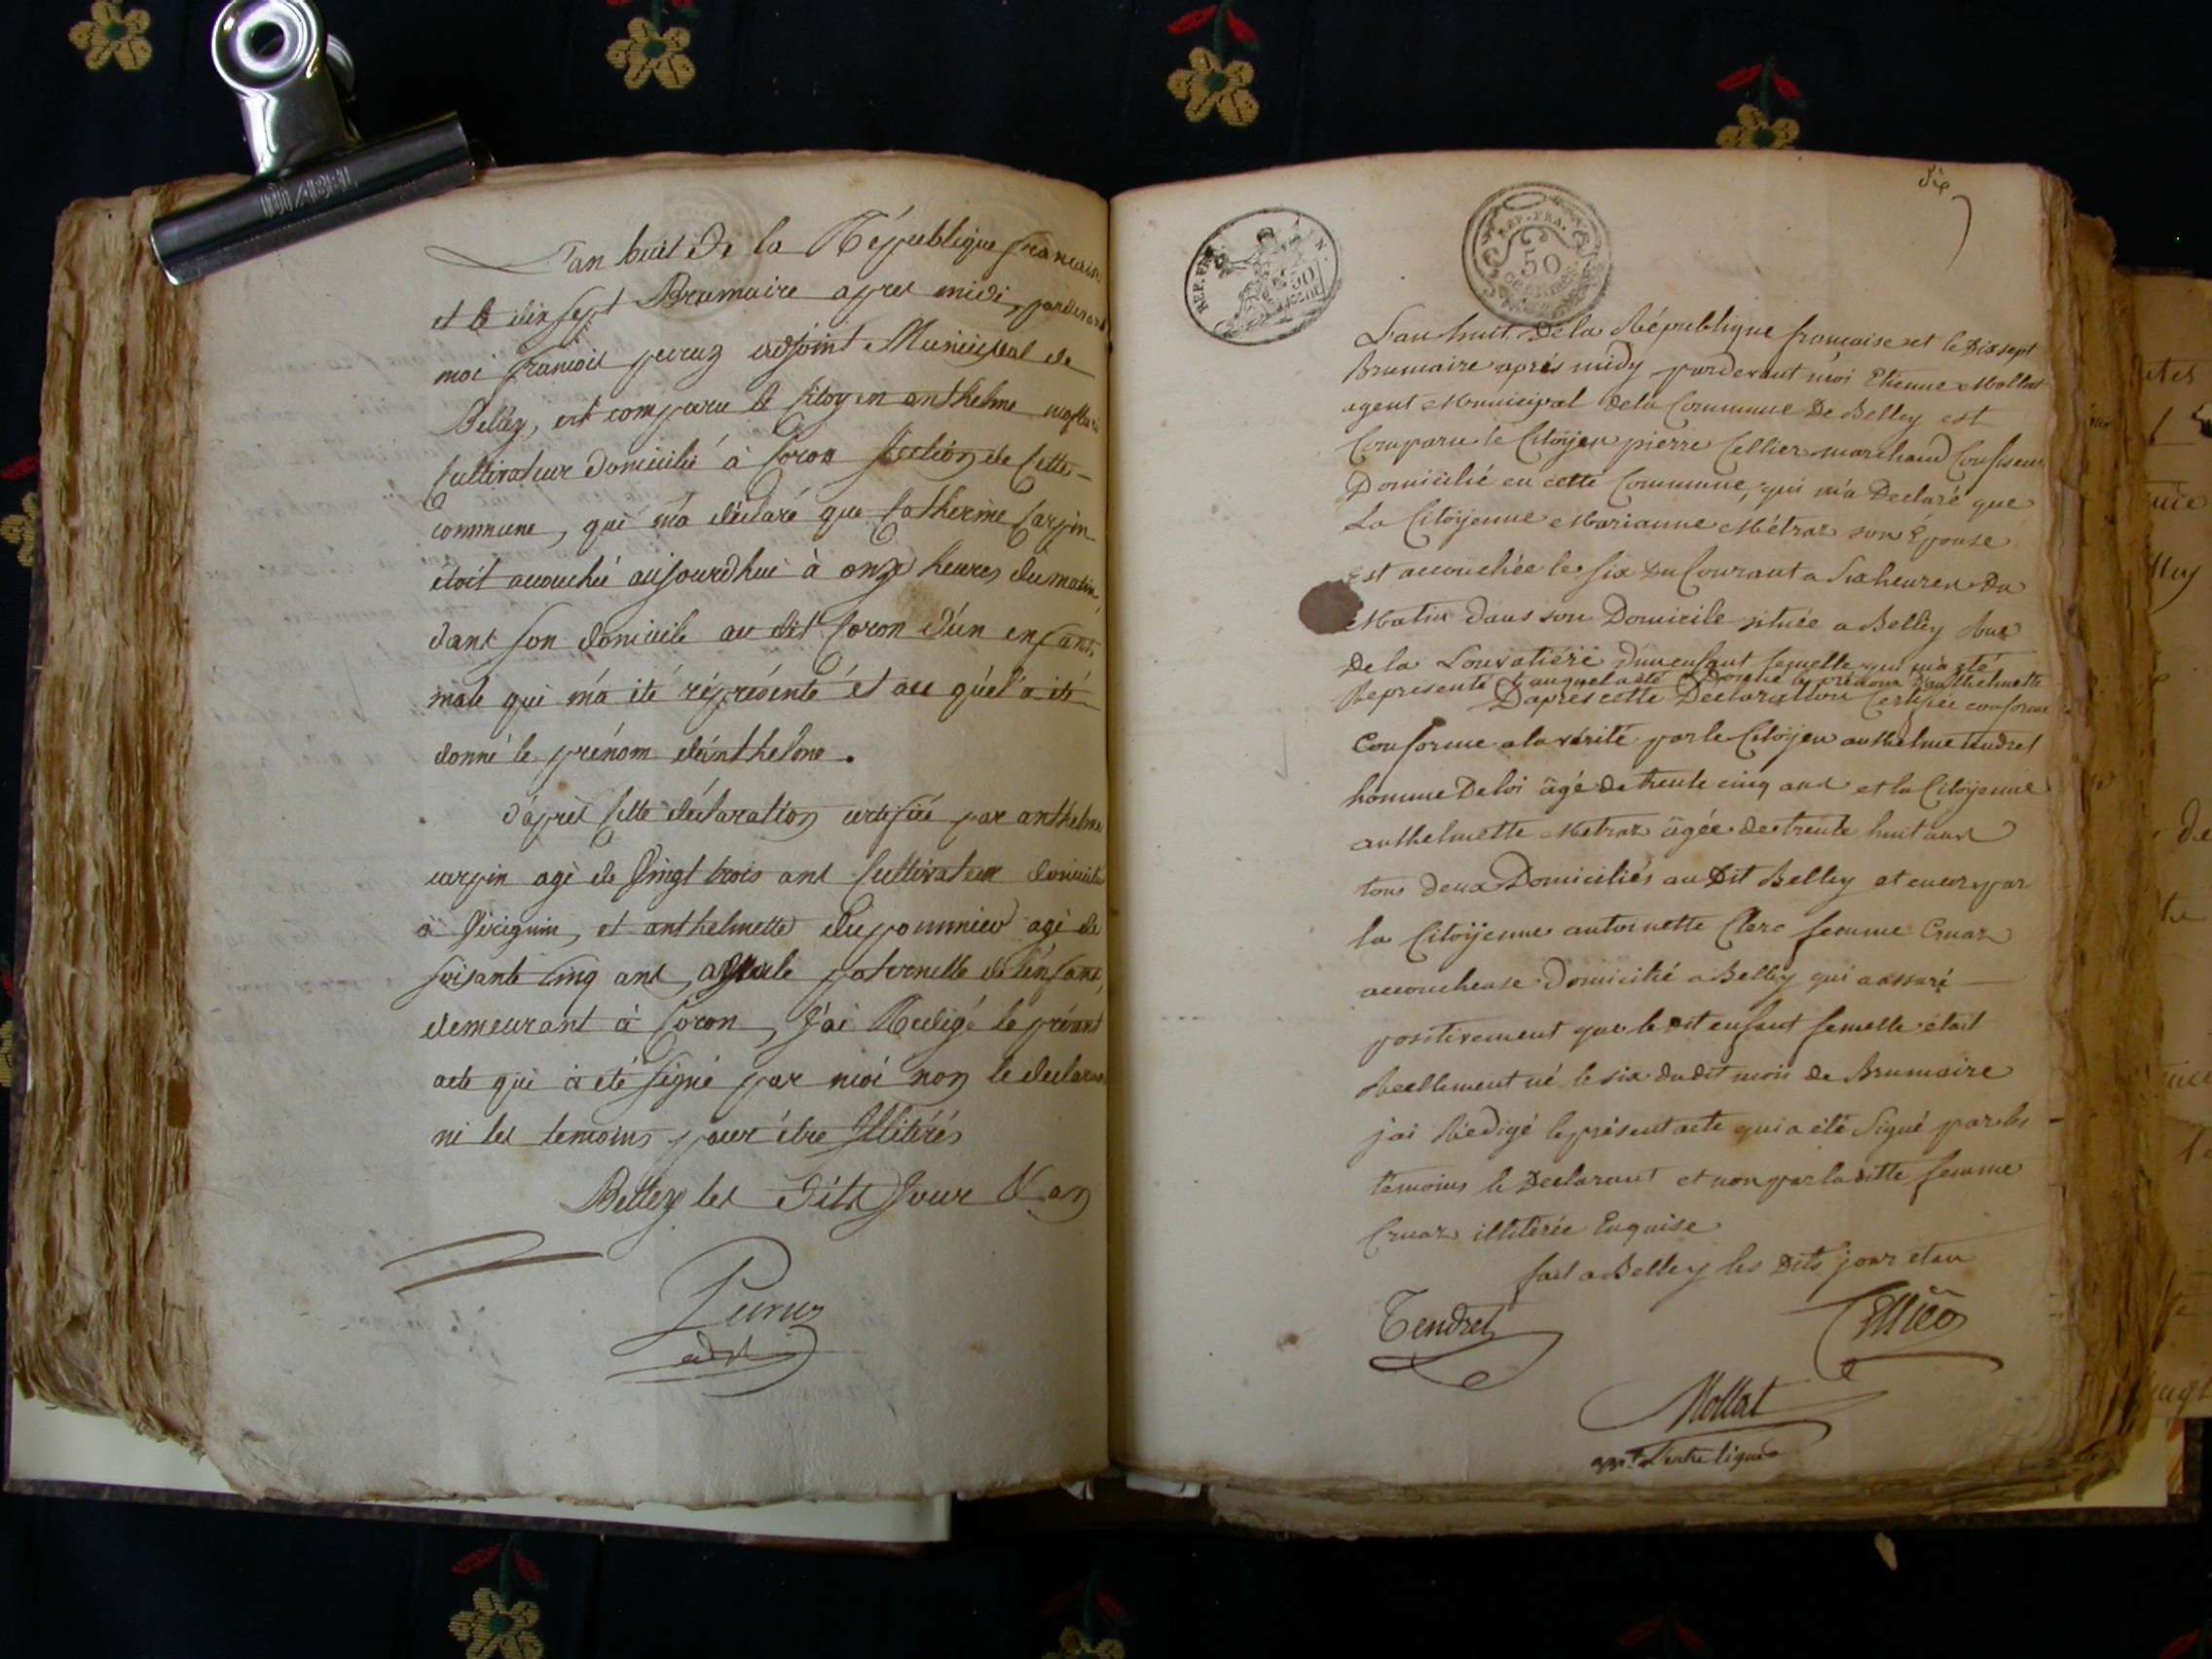 L'an huit De la République française
et le dix sept Brumaire apres midi, pardevant
moi françois peruz adjoint Municipal de
Belley, est comparu le Citoyen anthelme
Cultivateur domicilié à Coron Section de Cette
commune, qui m'a déclaré que Catherine Carpin
etoit accouchée aujourdhui à onze heures du matin,
dans son domicile au dit Coron d'un enfant
male qui m'a été réprésenté et au quel a été
donné le prénom d'anthelme.
d'après Cette déclaration certifiée par anthelme
carpin agé de Vingt trois ans Cultivateur domicilié
à et anthelmette dupommier agé de
soisante Cinq ans, ayeule paternelle de l'enfant,
demeurant à Coron, J'ai Redigé le présent
acte qui à eté signé par moi non le declarant
ni les temoins pour être Illitérés
Belley les dits Jour & an
Peruz
adjt
DIABEL
REP. FRA.
50
REP. FRA.
50
CENTIMES
six
L'an huit De la République française et le Dix sept
Brumaire après midy pardevant moi Etienne Mollat
agent Municipal de la Commune De Belley est
Comparu le Citoÿen pierre Cellier marchand Confiseur
Domicilié en cette Commune, qui m'a Declaré que
La Citoÿenne Marianne Métraz son Épouse
Est accouchée le six Du Courant a Six heures Du
Matin dans son Domicile située a Belley Rue
De la Louvatiere D'un enfant femelle qui m'a été
Représenté & auquel a été Donné le prénom D'anthelmette
D'après cette Declaration Certifiée conforme
Conforme a la vérité par le Citoÿen anthelme tendret
homme De loi âgé de trente cinq ans et la Citoÿenne
anthelmette Metraz âgée de trente huit ans
tous deux Domiciliés au Dit Belley et encor par
la Citoÿenne antoinette Clerc femme Cruaz
accoucheuse Domicilié a Belley qui a assuré
positivement que le dit enfant femelle était
Reellement né le six du dit mois de Brumaire
j'ai Rédigé le présent acte qui a été Signé par les
témoins le Declarant et non par la ditte femme
Cruaz illitérée Enquise
fait a Belley les Dits jour et an
Tendret
Cellier
Mollat
appt. l'entre ligne